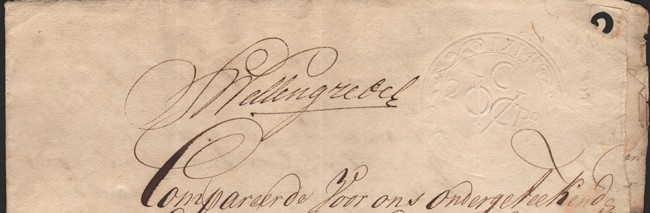 SWellengrebel
Compareerde Voor ons ondergeteekende